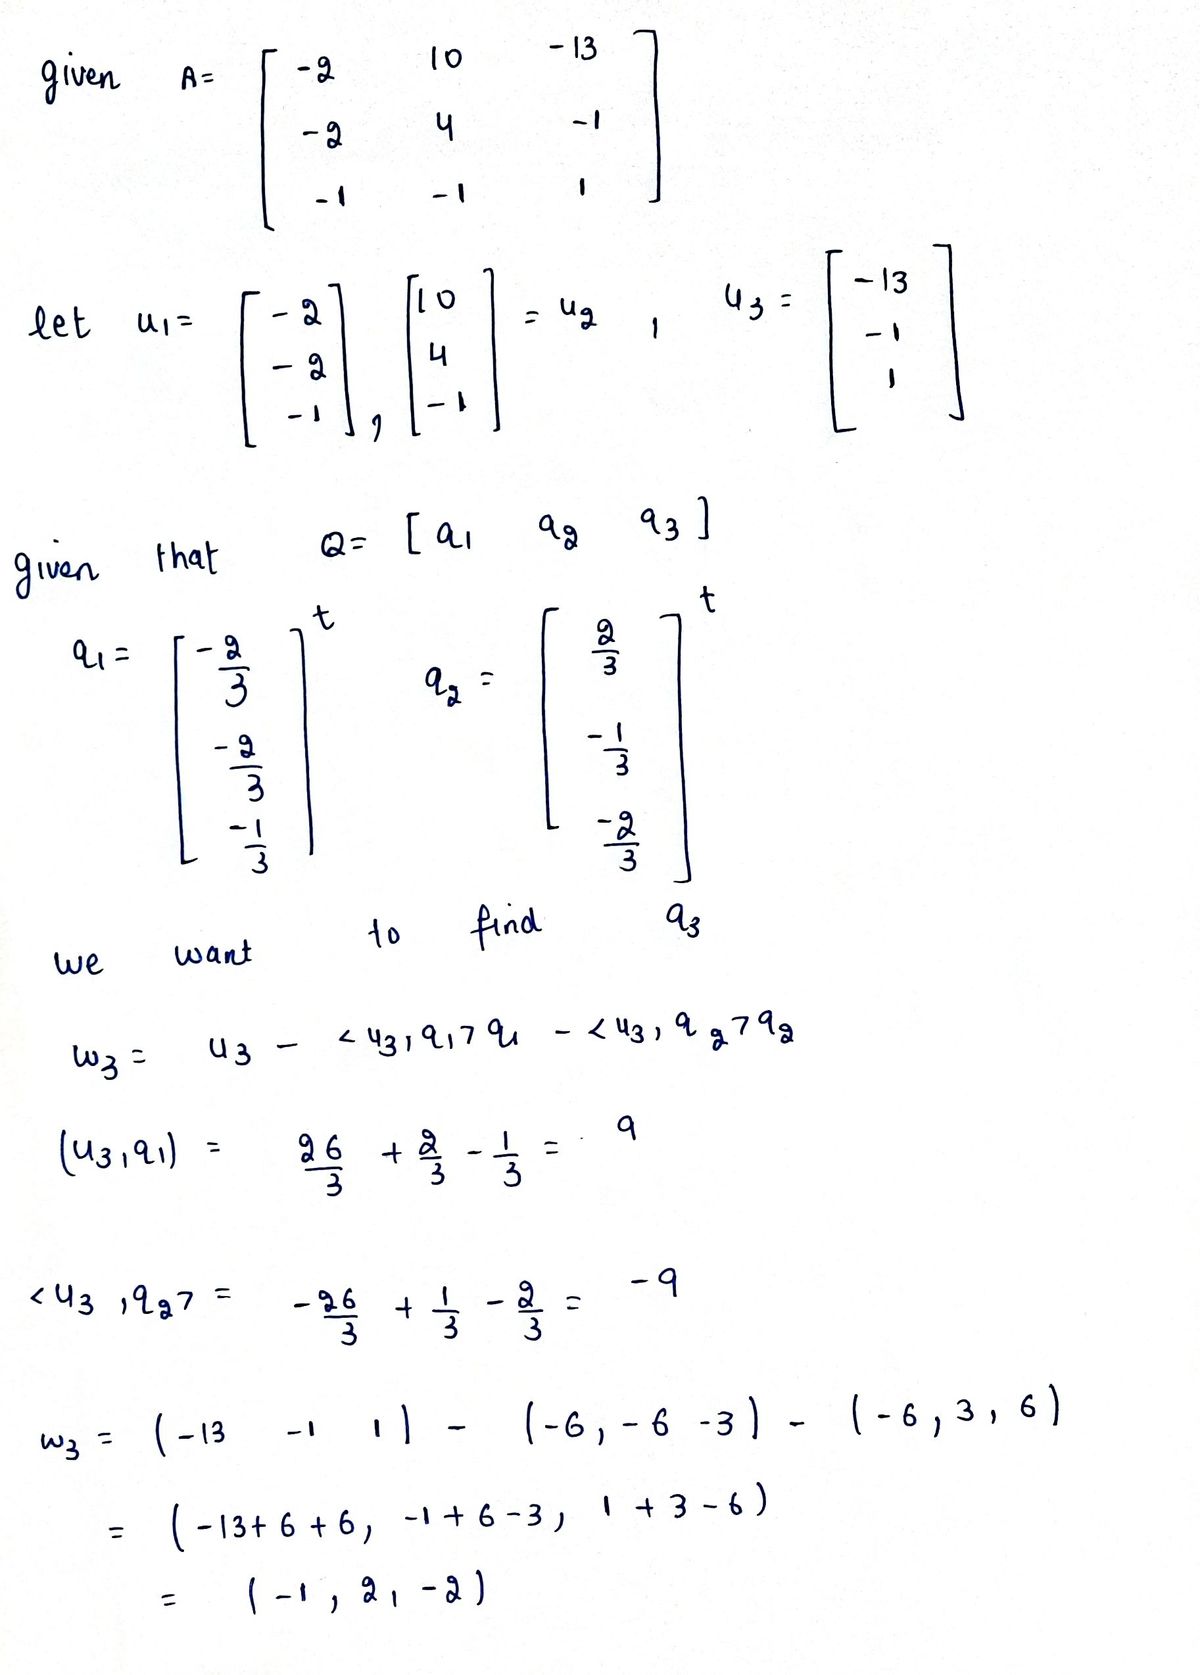 given A= [ -2 10 -13
-2 4 -1
-1 -1 1 ]
let u1= [ -2 -2 -1 ], [ 10 4 -1 ] = u2 , u3 = [ -13 -1 1 ]
given that Q= [ q1 q2 q3 ]
q1= [ -2/3 -2/3 -1/3 ]^t q2 = [ 2/3 -1/3 -2/3 ]^t
we want to find q3
w3 = u3 - <u3,q1>q1 - <u3,q2>q2
(u3,q1) = 26/3 + 2/3 - 1/3 = 9
<u3,q2> = -26/3 + 1/3 - 2/3 = -9
w3 = (-13 -1 1) - (-6, -6 -3) - (-6, 3, 6)
= (-13+6+6, -1+6-3, 1+3-6)
= (-1, 2, -2)